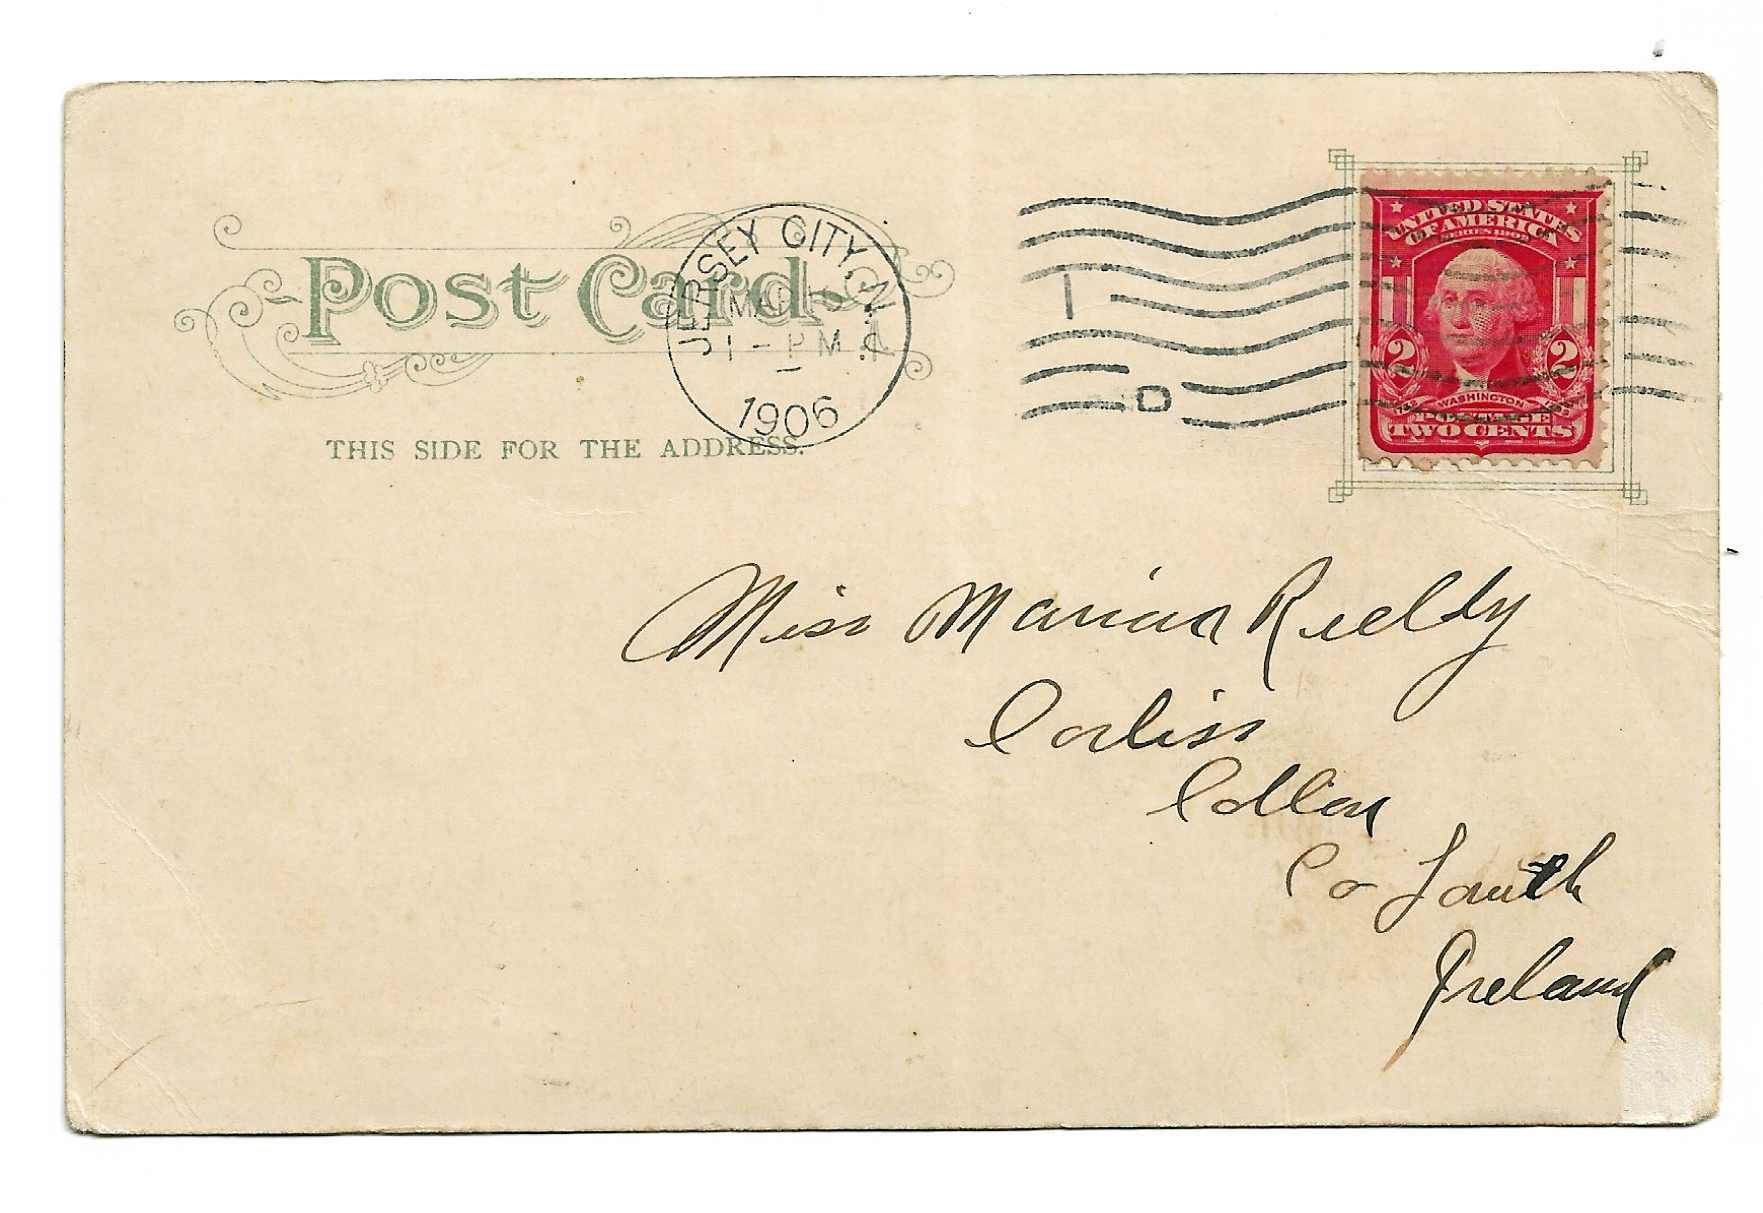 Post Card
THIS SIDE FOR THE ADDRESS.
JERSEY CITY, N.J.
MAR
1-PM
1906
UNITED STATES
OF AMERICA
SERIES 1902
2 2
WASHINGTON
POSTAGE
TWO CENTS
Miss Marian Reilly
Corliss
Collon
Co Louth
Ireland